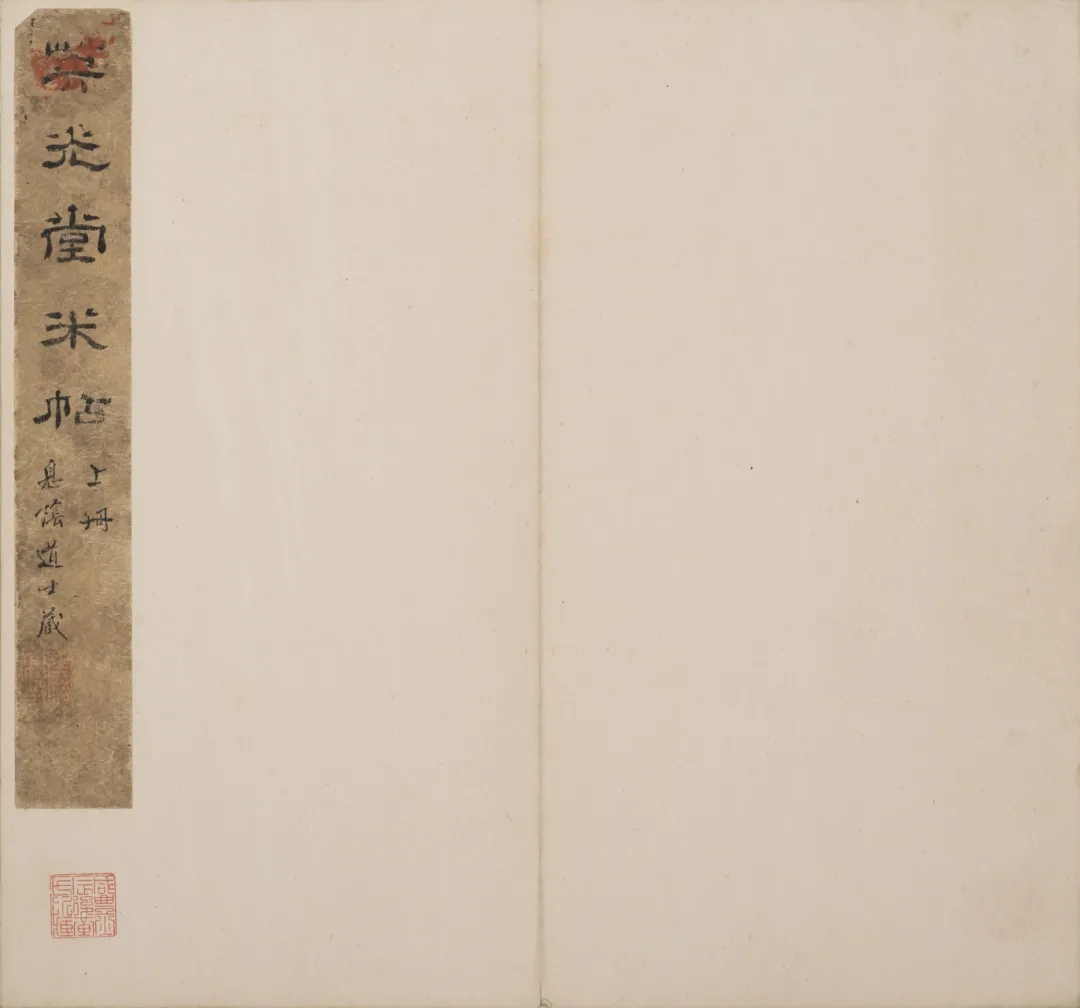 英光堂米帖
上册
息隂道士藏